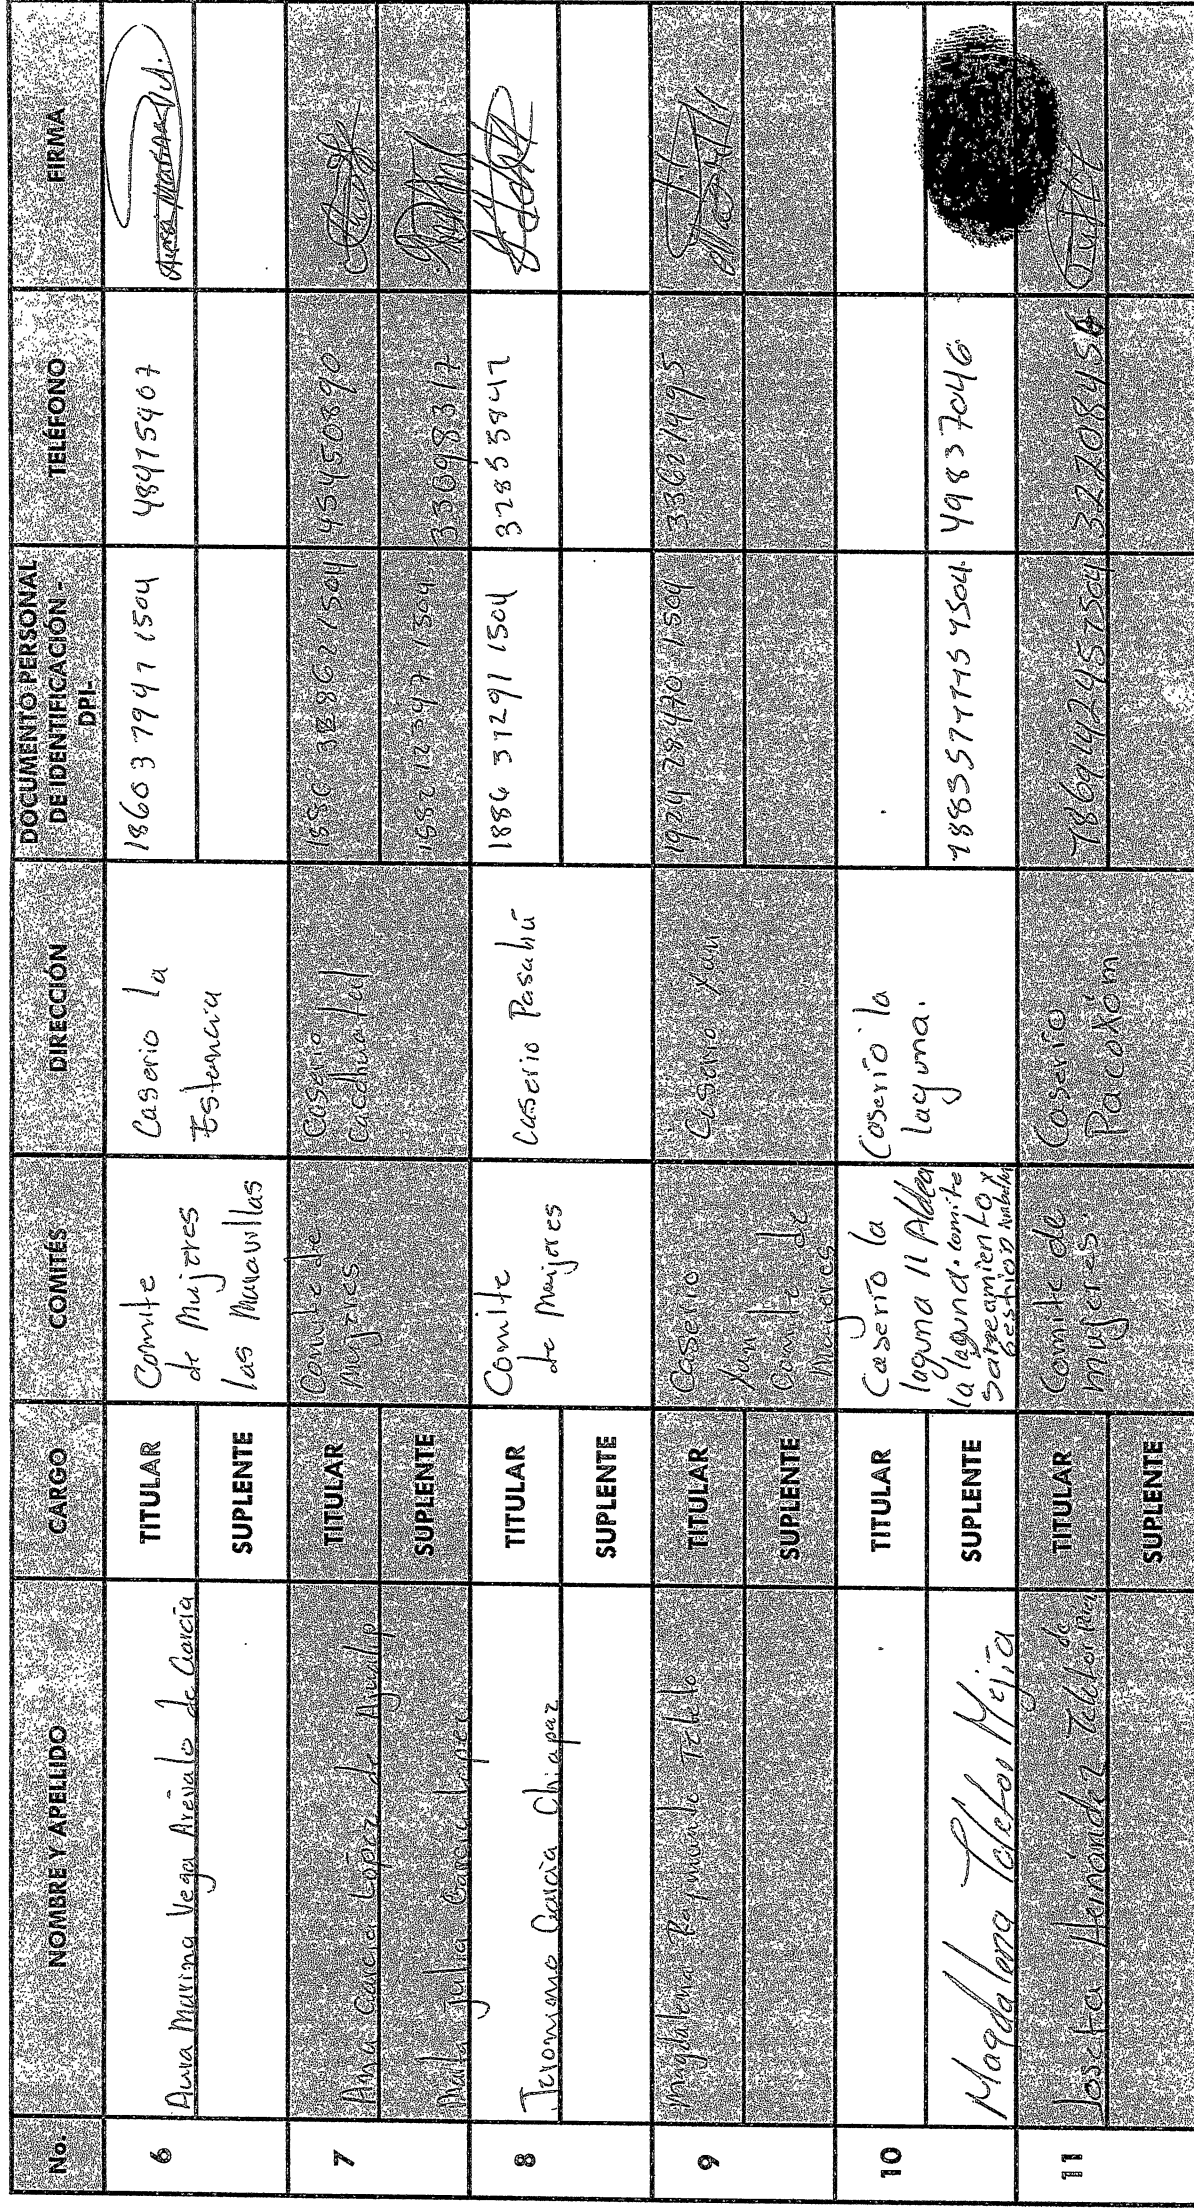 No.
NOMBRE Y APELLIDO
CARGO
COMITÉS
DIRECCIÓN
DOCUMENTO PERSONAL
DE IDENTIFICACIÓN -
DPI-
TELÉFONO
FIRMA
6
Aura Marina Vega Arevalo de García
TITULAR
Comite
de Mujeres
las Maravillas
Caserio la
Estancia
18603 7947 1504
48475907
SUPLENTE
7
Ana García López de
TITULAR
Comite de
Mujeres
Caserio
1504
45450890
María Julia García López
SUPLENTE
1582 12347 1504
33698317
8
Jeronimo García Chiapaz
TITULAR
Comite
de Mujeres
Caserio Pasahú
1886 37291 1504
32855847
SUPLENTE
9
Magdalena Raymundo Toledo
TITULAR
Caserio
Xun
Comite de
Mujeres
Caserio Xun
1924 78470 1504
33621495
SUPLENTE
10
TITULAR
Caserio la
laguna II Aldea
la laguna. comite
Saneamiento y
Gestion
Caserio la
laguna.
Magdalena Mejía
SUPLENTE
49837046
11
Josefa Hernández
TITULAR
Comite de
mujeres.
Caserio
Pacoxom
SUPLENTE